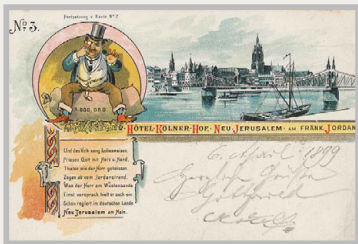 Fortsetzung v. Karte No 2
No 3.
1.000,000
HÔTEL-KÖLNER-HOF-NEU-JERUSALEM-AM FRÄNK. JORDAN
Und das Volk sang Lobesweisen
Priesen Gott mit Herz u. Hand,
Thaten wie der Herr geheissen,
Zogen ab vom Jordanstrand.
Was der Herr am Wüstensande
Einst versprach, hielt er auch ein
Schon regiert im deutschen Lande
Neu Jerusalem am Main.
6. April 1899